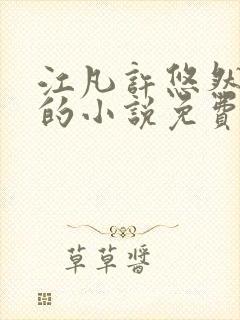 江凡許悠然
的小說免費
草草醬